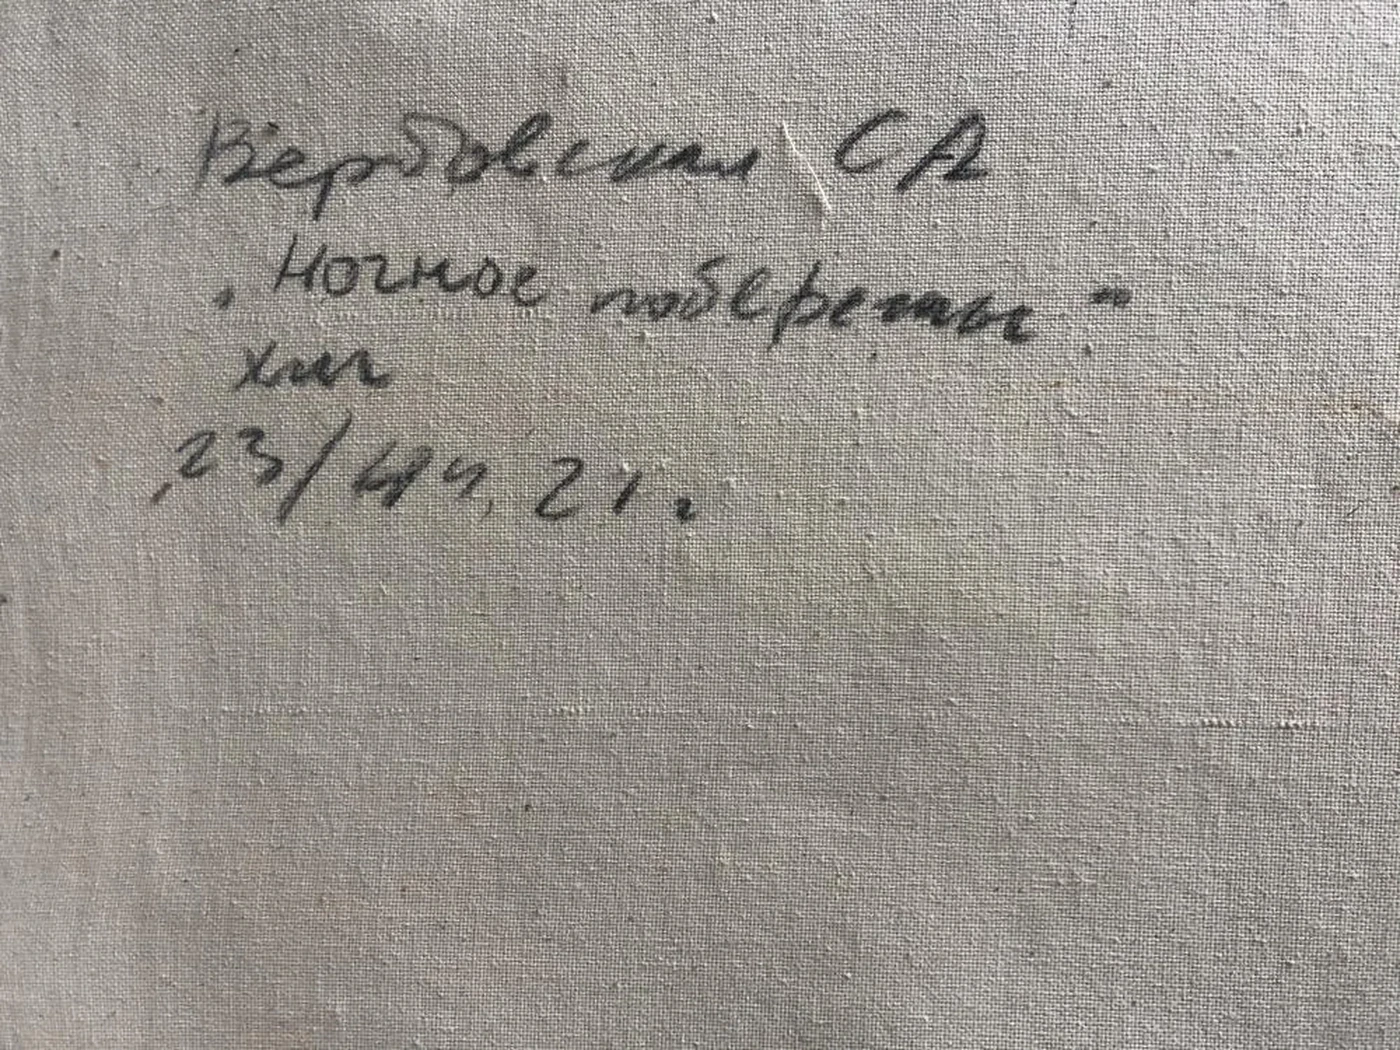 Вербовская СА
„Ночное побережье"
хм
23/ 21.